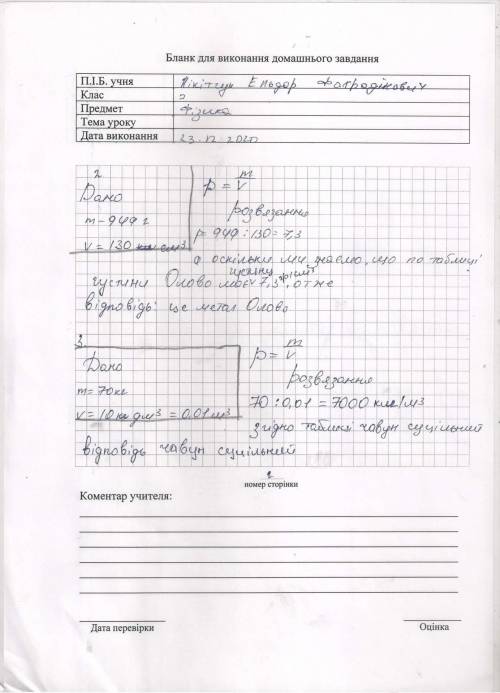 Бланк для виконання домашнього завдання
П.І.Б. учня Ельдор
Клас
Предмет Фізика
Тема уроку
Дата виконання 23.12.2020
2
Дано
m - 949 г
V = 130 см³
p = m/V
розвязання
p = 949 : 130 = 7,3
а оскільки ми знаємо, що по таблиці
густини Олово має 7,3 , отже
відповідь: це метал Олово
3.
Дано
m = 70 кг
V = 10 дм³ = 0.01 м³
p = m/V
розвязання
70 : 0,01 = 7000 кг/м³
згідно таблиці чавун суцільний
відповідь чавун суцільний
2
номер сторінки
Коментар учителя:
Дата перевірки
Оцінка